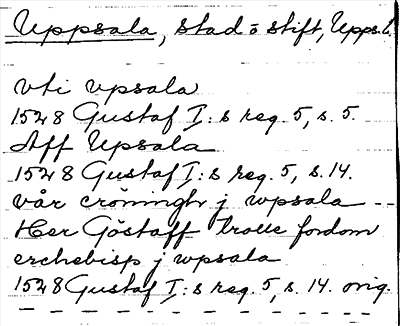 Uppsala, stad o stift, Upps. l.
vti vpsala
1528 Gustaf I:s reg. 5, s. 5.
Aff Upsala
1528 Gustaf I:s reg. 5, s. 14.
vår cröningh j wpsala --
Her Göstaff trolle fordom
erchebisp j wpsala
1528 Gustaf I:s reg. 5, s. 14. orig.